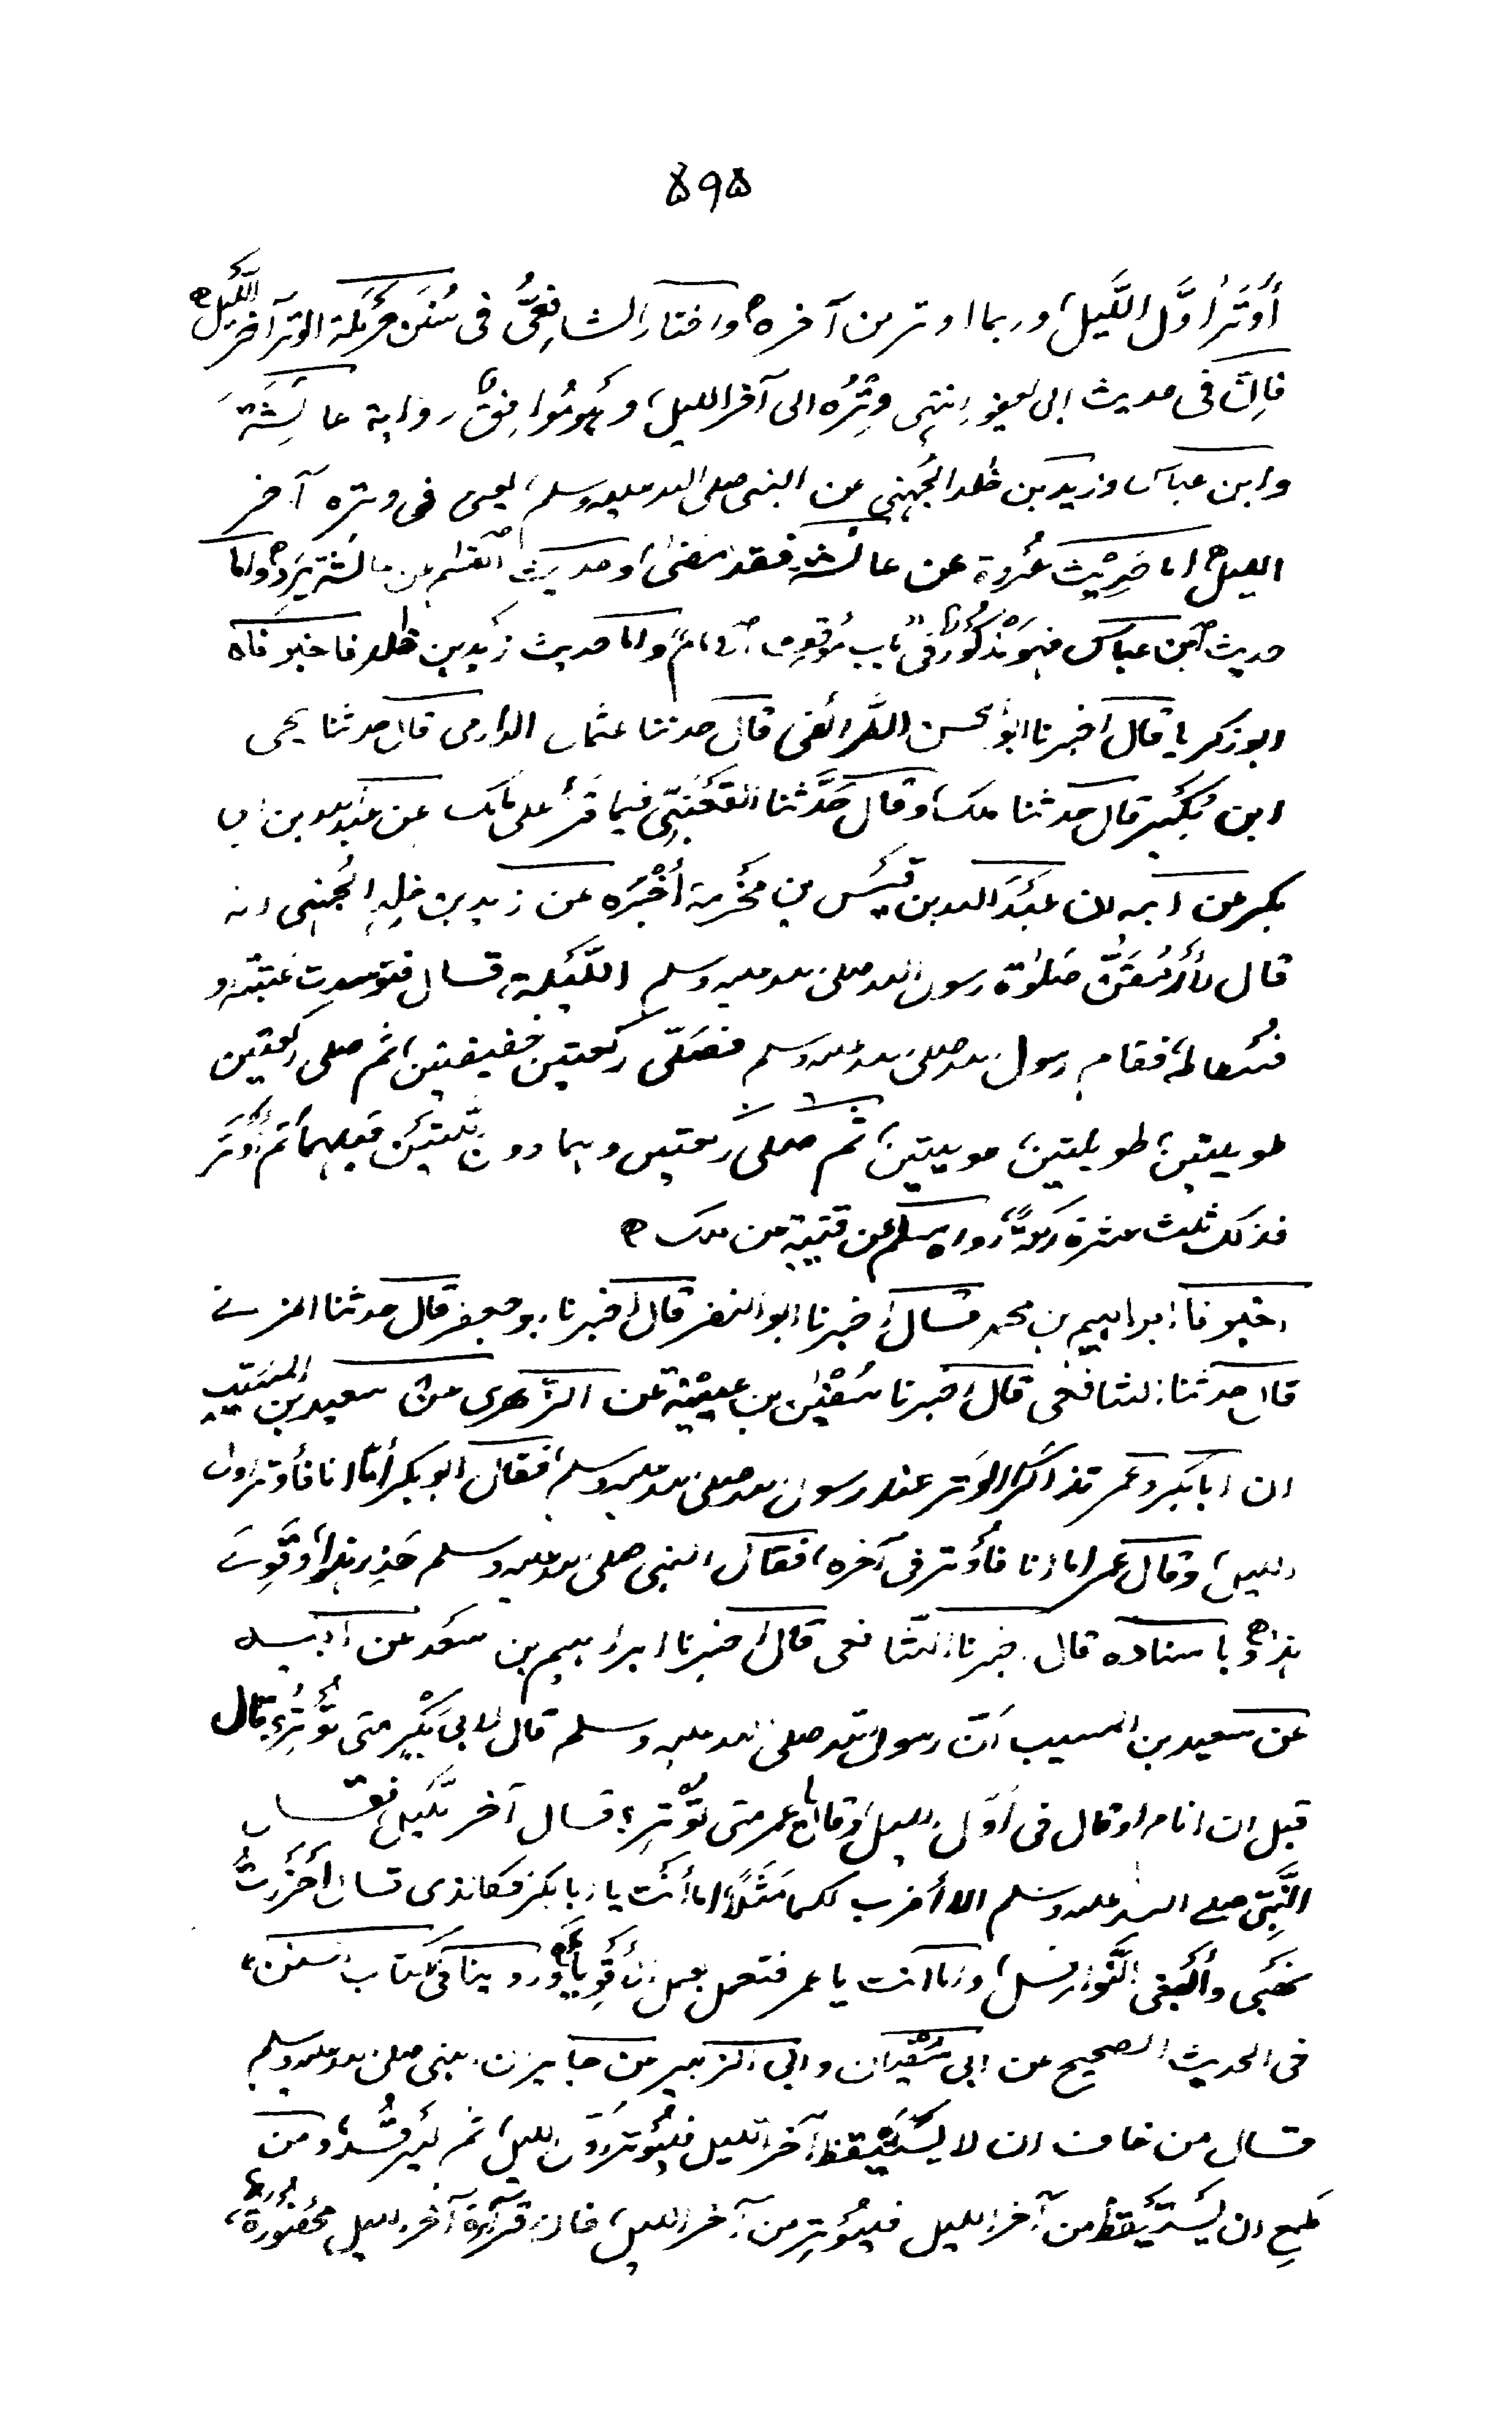 ۵۹۵
أَوْتَرَ أوَّل اللَّيل، وربما اوتر من آخره، واختار الشافِعيُّ فى سُنَن حَرْمَلة الوترَ آخر اللَّيل
فاِنّ فى حديث ابى يعفور انتهى وِتْرُه الى آخر الليل، وهُو مُوافِقٌ رواية عائِشَةَ
وابن عباس وزيد بن خٰلد الجُهَنِى عن النبى صلى الله عليه وسلم، يعنى فى وتره آخر
الليل، اما حَدِيْث عُروة عن عائشة فقد مضىٰ، وحديث القٰسم عن عائشة يَرِد، واما
حديث ابن عباس فهو مَذْكُورٌ فى باب مَوقِف الامام، واما حديث زيد بن خٰلد فاخبرناه
ابو زكريا قال اخبرنا ابو الحسن الطَّرائفى قال حدثنا عثمان الدارمى قال حدثنا يحى
ابن بُكَيْر قال حدثنا ملك، وقال حَدَّثنا القَعْنَبِىّ فيما قَرَأ على مٰلك عن عبد الله بن ابى
بكر عن ابيه ان عَبْدَ الله بن قَيْس بن مَخْرمة أَخْبَرَه عن زيد بن خٰلدٍ الجُهَنِى انه
قال لأَرْمُقَنَّ صَلٰوة رسول الله صلى الله عليه وسلم اللَّيْلة، قال فتوسدت عَتَبَتَه او
فُسْطاطه، فقام رسول الله صلى الله عليه وسلم فصَلّى ركعتين خفيفتين، ثم صلى ركعتين
طويلتين، طويلتين، طويلتين، ثم صلى ركعتين وهما دون اللَّتَيْن قبلهما، ثم أَوْتَرَ
فذلك ثلٰث عشرة ركعةً، رواه مسلم عن قتيبة عن ملك
اخبرنا ابراهيم بن محمد قال اخبرنا ابو النضر قال اخبرنا ابو جعفر قال حدثنا المزنى
قال حدثنا الشافعى قال اخبرنا سُفْيٰن بن عيينة عن الزهرى عن سعيد بن المسَيّب
ان ابا بكر وعمر تذاكرا الوتر عند رسول الله صلى الله عليه وسلم، فقال ابو بكر أمّا انا فأوتر اول
الليل، وقال عمر اما انا فأوتر فى آخره، فقال النبى صلى الله عليه وسلم حَذِر هٰذا، وقَوِىَ
هذا، وباسناده قال اخبرنا الشّافعى قال اخبرنا ابراهيم بن سعد عن ابيه
عن سعيد بن المسيب انّ رسول الله صلى الله عليه وسلم قال لابى بَكْرٍ متى تُوْتِرُ؟ قال
قبل ان انام او قال فى اوّل الليل، وقال يا عمر متى تُوْتِر؟ قال آخر اللَّيل، فقال
النَّبِىّ صلى الله عليه وسلم الا أضرب لكما مَثَلًا، اما أنْتَ يا ابا بكر فكالذى قال أحْرَزْتُ
نَهْبِى وأبْتَغِى النَّوافِل، واما انت يا عمر فتعمل بعمل الأقْوِياء، وروينا فى كتاب السنن
فى الحديث الصحيح عن ابى سُفْيان وابى الزبير عن جابر ان النبى صلى الله عليه وسلم
قال من خاف ان لا يَسْتَيْقظ آخر الليل فليُوتر اوّل الليل ثم ليَرقُد، ومن
طَمِع ان يَسْتَيْقظَ من آخر الليل فليُوتِر من آخر الليل، فان قرآءة آخر الليل محضُورةٌ،